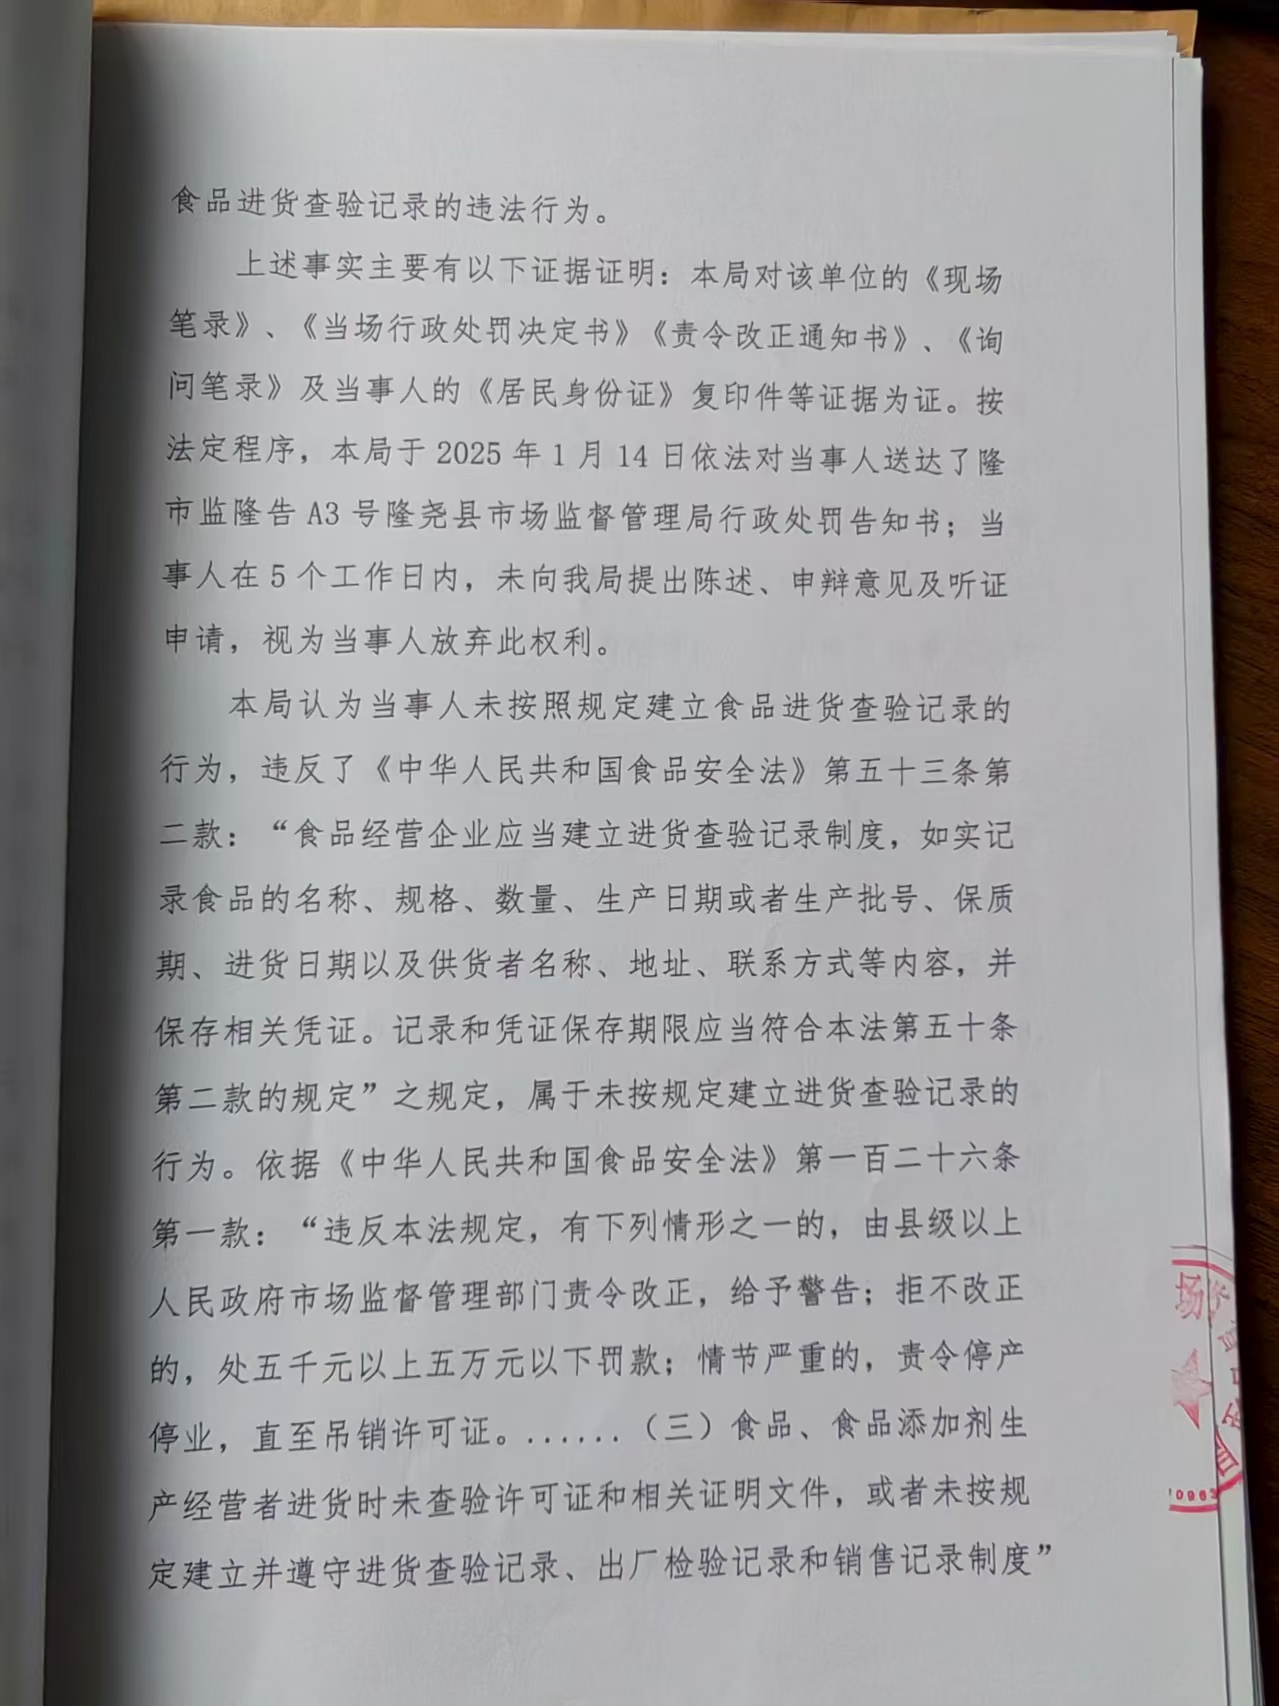 食品进货查验记录的违法行为。
上述事实主要有以下证据证明：本局对该单位的《现场
笔录》、《当场行政处罚决定书》《责令改正通知书》、《询
问笔录》及当事人的《居民身份证》复印件等证据为证。按
法定程序，本局于 2025 年 1 月 14 日依法对当事人送达了隆
市监隆告 A3 号隆尧县市场监督管理局行政处罚告知书；当
事人在 5 个工作日内，未向我局提出陈述、申辩意见及听证
申请，视为当事人放弃此权利。
本局认为当事人未按照规定建立食品进货查验记录的
行为，违反了《中华人民共和国食品安全法》第五十三条第
二款：“食品经营企业应当建立进货查验记录制度，如实记
录食品的名称、规格、数量、生产日期或者生产批号、保质
期、进货日期以及供货者名称、地址、联系方式等内容，并
保存相关凭证。记录和凭证保存期限应当符合本法第五十条
第二款的规定”之规定，属于未按规定建立进货查验记录的
行为。依据《中华人民共和国食品安全法》第一百二十六条
第一款：“违反本法规定，有下列情形之一的，由县级以上
人民政府市场监督管理部门责令改正，给予警告；拒不改正
的，处五千元以上五万元以下罚款；情节严重的，责令停产
停业，直至吊销许可证。......（三）食品、食品添加剂生
产经营者进货时未查验许可证和相关证明文件，或者未按规
定建立并遵守进货查验记录、出厂检验记录和销售记录制度”
场
10963